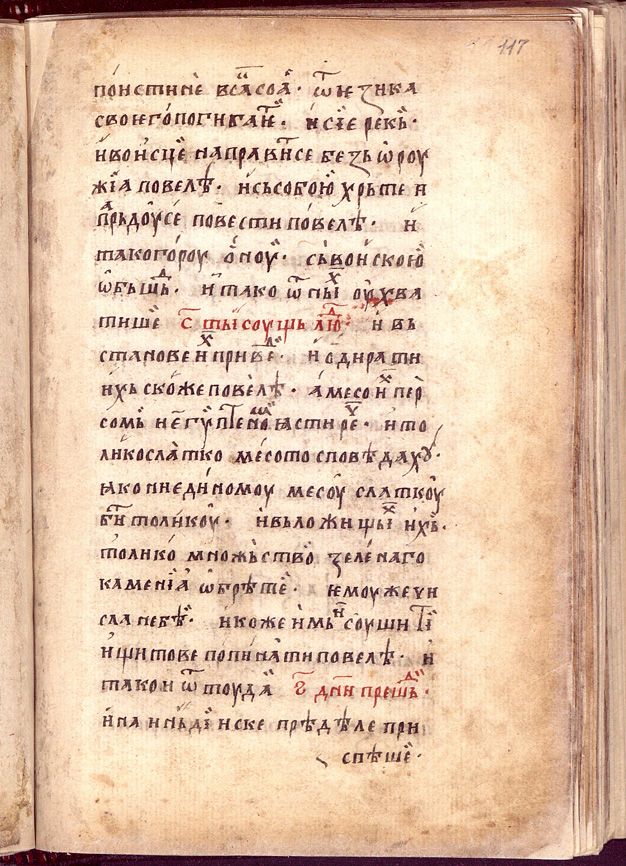 117
поистине всѧ соѧ҆ · ѿ ѥзика
своѥго погибаѥ҆ть · и҆ сїе реке҆ ·
и҆ вои҆сце направитсе безь ѡроу
жїа повелѣ · и҆ сьсобою хрьте и
повести повелѣ · и
такогороу о҆ноу · сьвоискою
ѡбьшьд · и҆ тако ѿ ны͒х оу҆хва
тише с҃ тысоущь лю͒д · и вь
и҆ одирати
ихь скоже повелѣ · а месо и҆х пер
ꙗсти · и҆ то
ликослатко месото сповѣдахꙋ ·
ꙗко ниединомоу месоу слаткоу
бїти толикоу · и҆ вьложишы͒х ихь ·
толико множьство зеленаго
каменїа ѡбрѣте · ѥмоуже чи
сла небѣ · и҆ коже имь
и҆ щитове попинати повелѣ · и
тако и ѿтоуда г҃ дни прешьд ·
и҆ на иньдїиске прѣдѣле при
спѣше ·